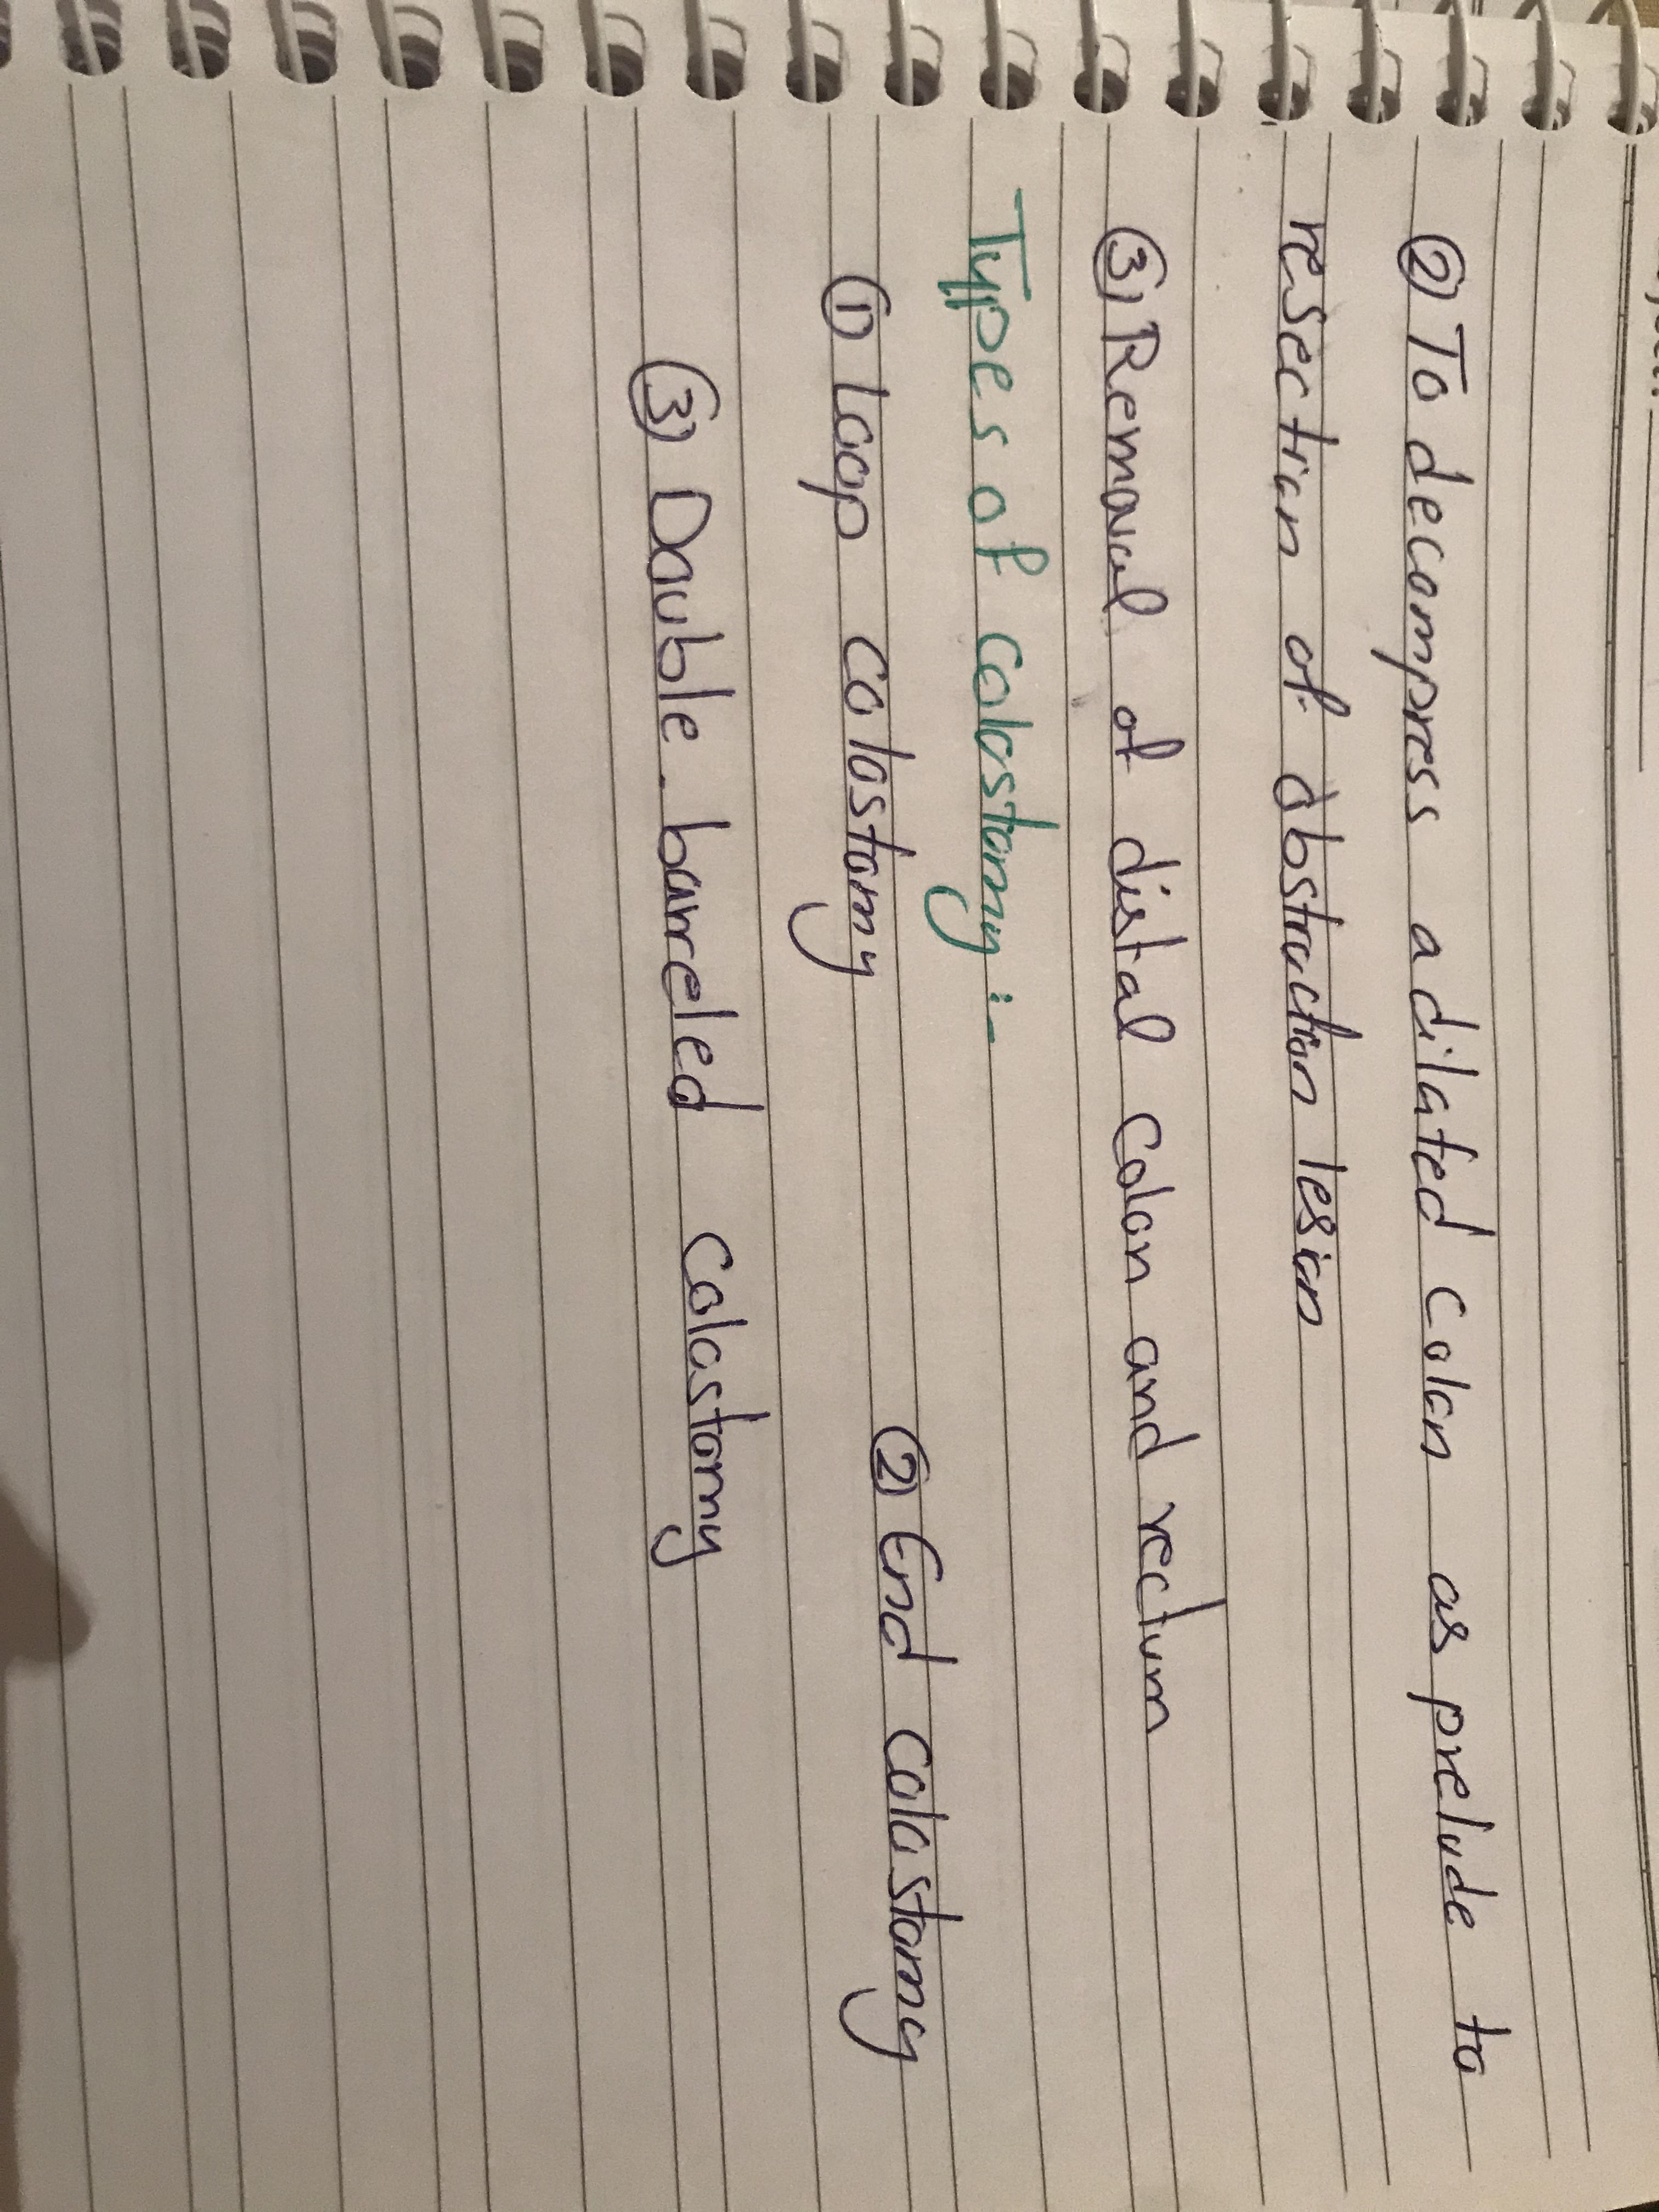 ② To decompress a dilated colon as prelude to
resection of obstruction lesion
③ Removal of distal colon and rectum
Types of colostomy :-
① Loop colostomy ② End colostomy
③ Double-barreled colostomy